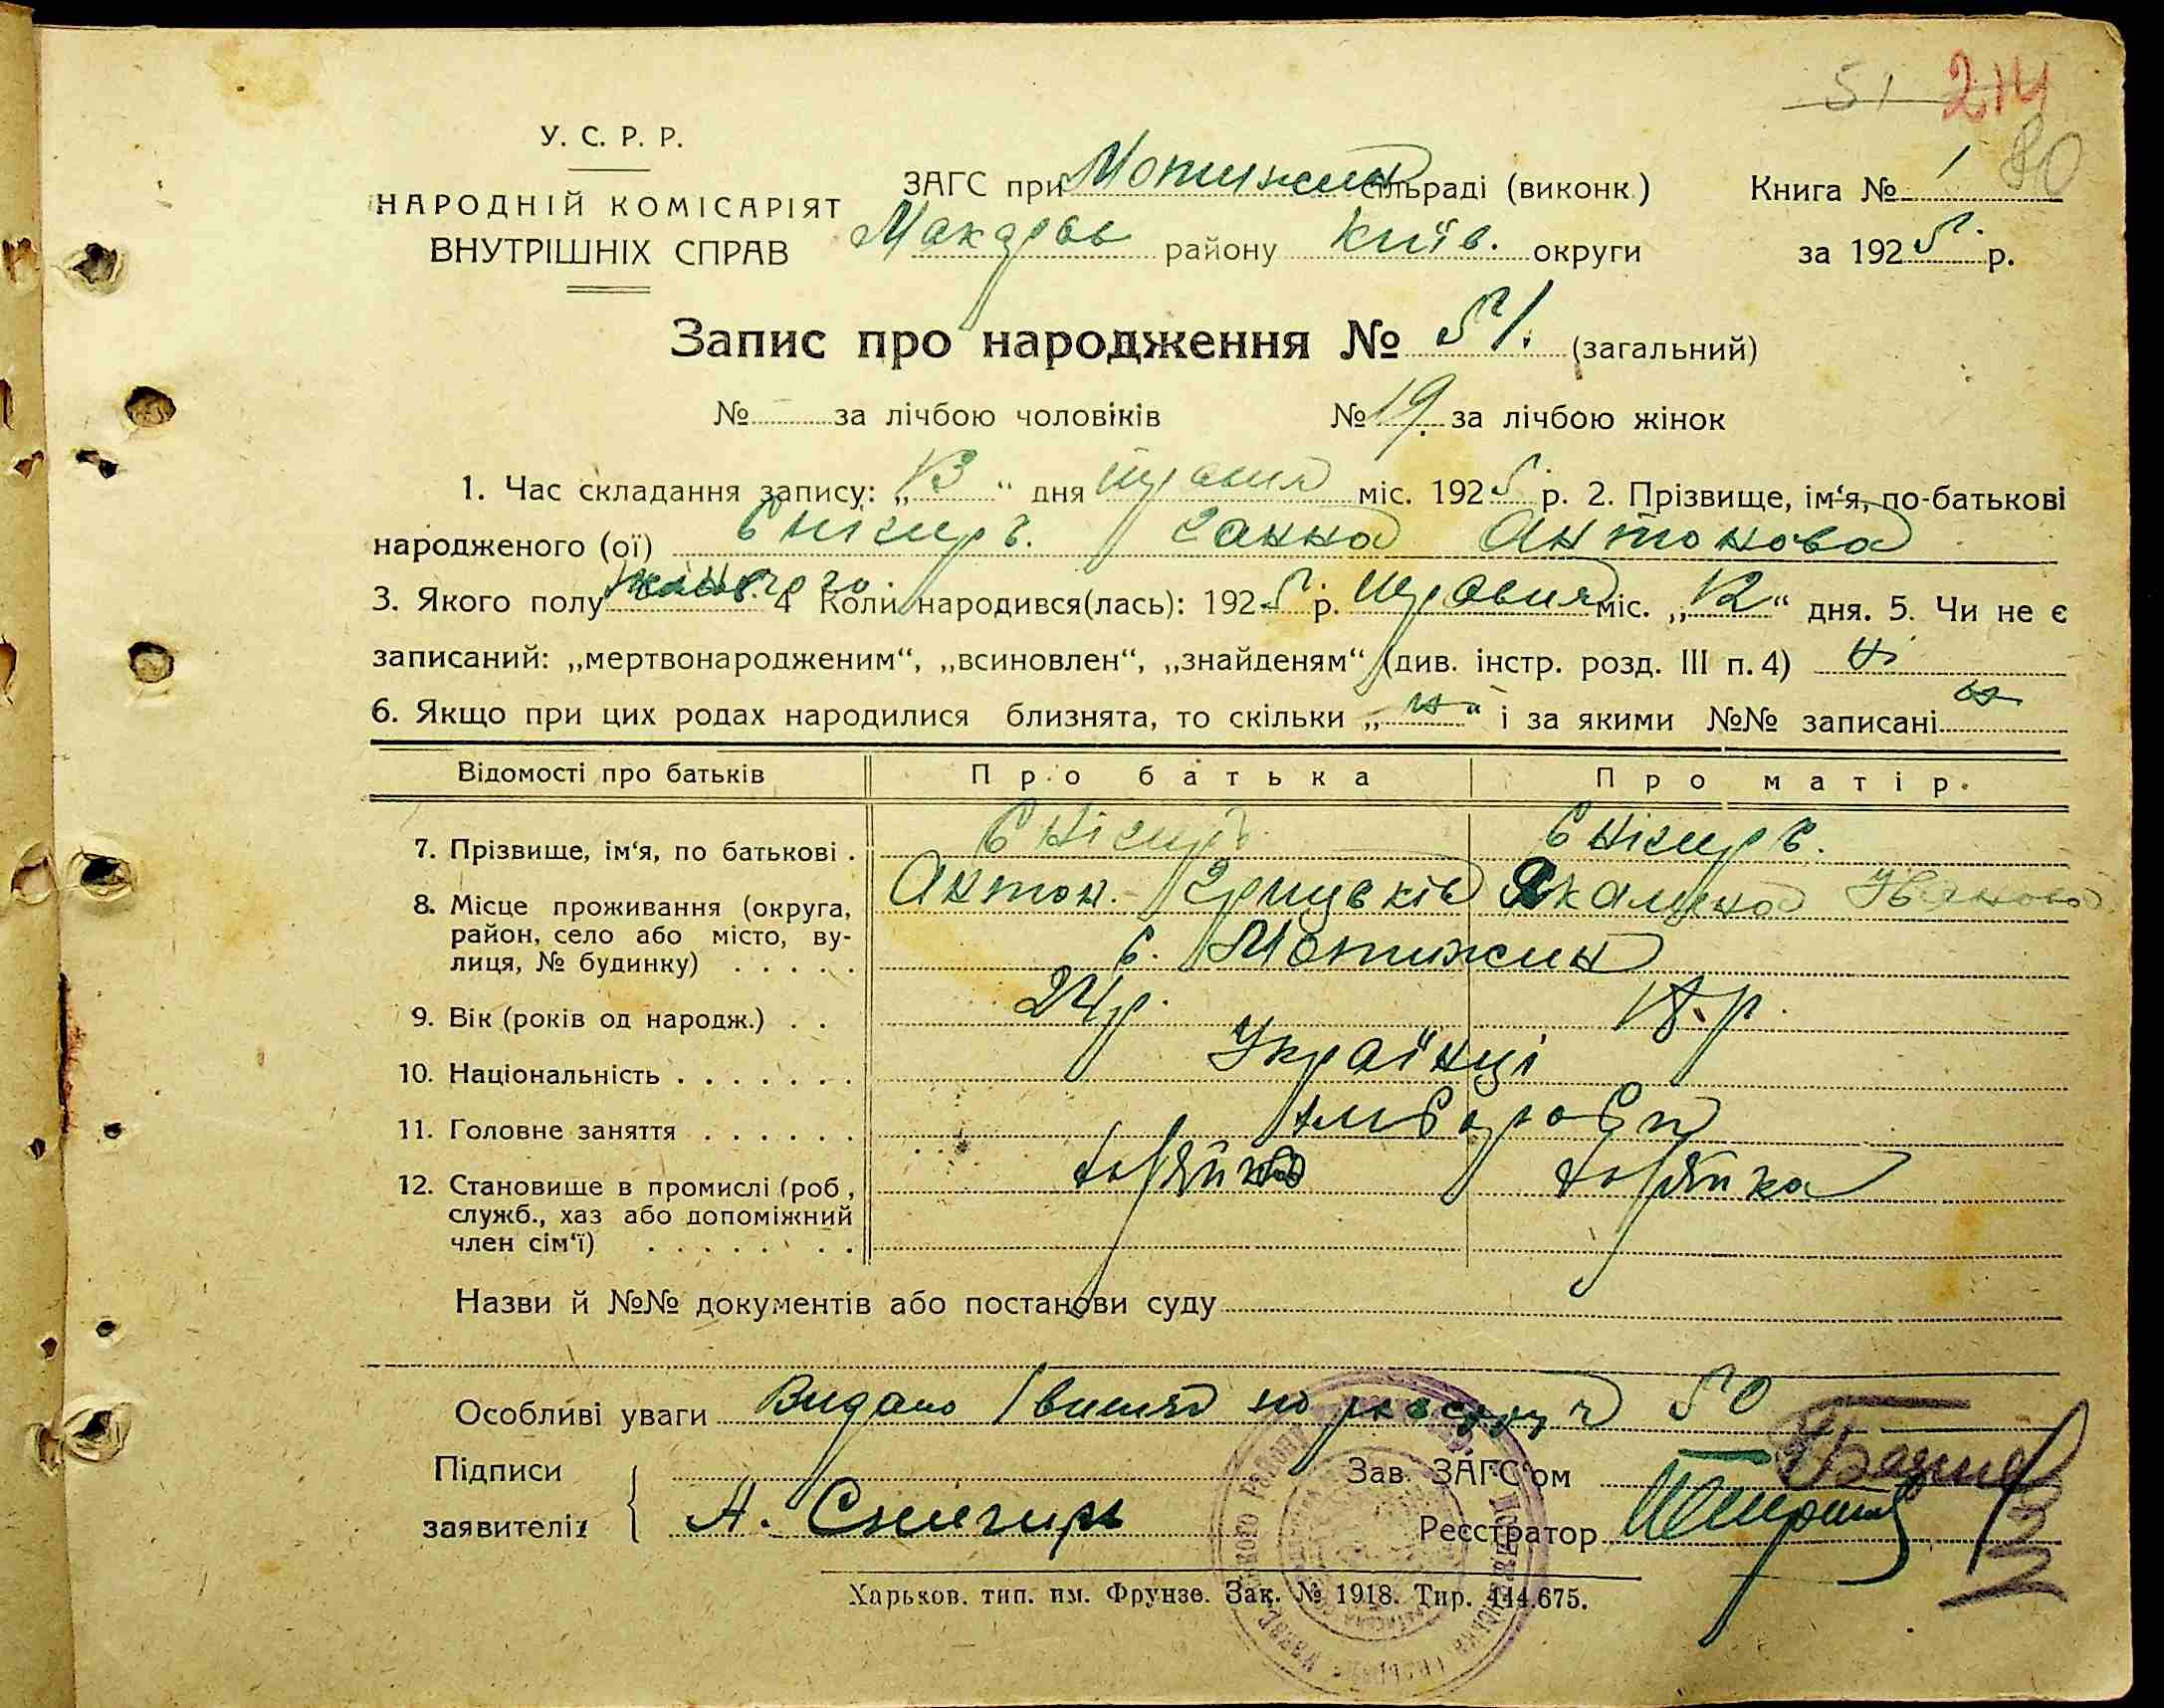 51 214
80
У. С. Р. Р.
НАРОДНІЙ КОМІСАРІЯТ
ВНУТРІШНІХ СПРАВ
ЗАГС при Мотижин сільраді (виконк.)
Макарів району Київ. округи
Книга № 1
за 1925 р.
Запис про народження № 51. (загальний)
№ за лічбою чоловіків № 19. за лічбою жінок
1. Час складання запису: „13“ дня травня міс. 1925 р. 2. Прізвище, ім‘я, по-батькові
народженого (ої) Снігирь. Ганна Антонова
3. Якого полу жіночого. 4 Коли народився(лась): 1925 р. травня міс. „12“ дня. 5. Чи не є
записаний: „мертвонародженим“, „всиновлен“, „знайденям“ (див. інстр. розд. III п. 4) ні
6. Якщо при цих родах народилися близнята, то скільки „ н “ і за якими №№ записані н
Відомості про батьків Про батька Про матір.
7. Прізвище, ім‘я, по батькові . Снігирь Снігирь.
8. Місце проживання (округа, Антон. Грицьків Якилина Іванова
район, село або місто, ву-
лиця, № будинку) . . . . . с. Мотижин
9. Вік (років од народж.) . . 24 р. 18. р.
10. Національність . . . . . . . Українці
11. Головне заняття . . . . . . хлібороби
12. Становище в промислі (роб, хазяйка
служб., хаз або допоміжний
член сім‘ї) . . . . . . .
Назви й №№ документів або постанови суду
Особливі уваги Видано 50
Підписи
заявителів А. Снигирь
Зав. ЗАГС‘ом
Реєстратор
Харьков. тип. им. Фрунзе. Зак. № 1918. Тир. 444.675.